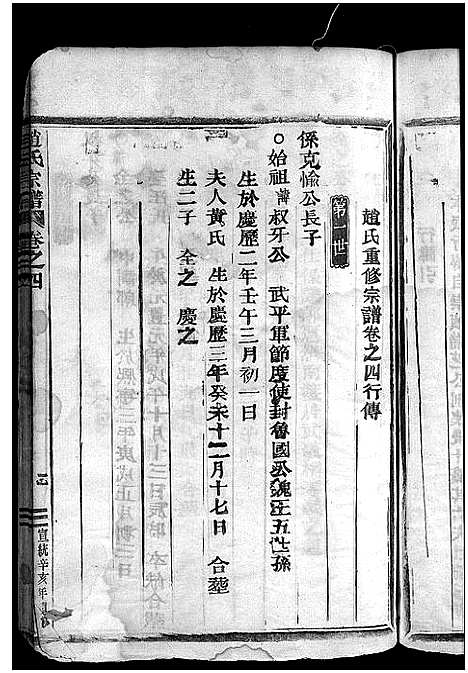 趙氏重修宗譜卷之四行傳
第一世
係克愉公長子
○始祖諱叔牙公 武平軍節度使封魯國公魏王五世孫
生於慶歷二年壬午三月初一日
夫人黃氏 生於慶歷三年癸未十二月十七日 合塟
生二子 全之 慶之
趙氏宗譜 卷之四
宣統辛亥年